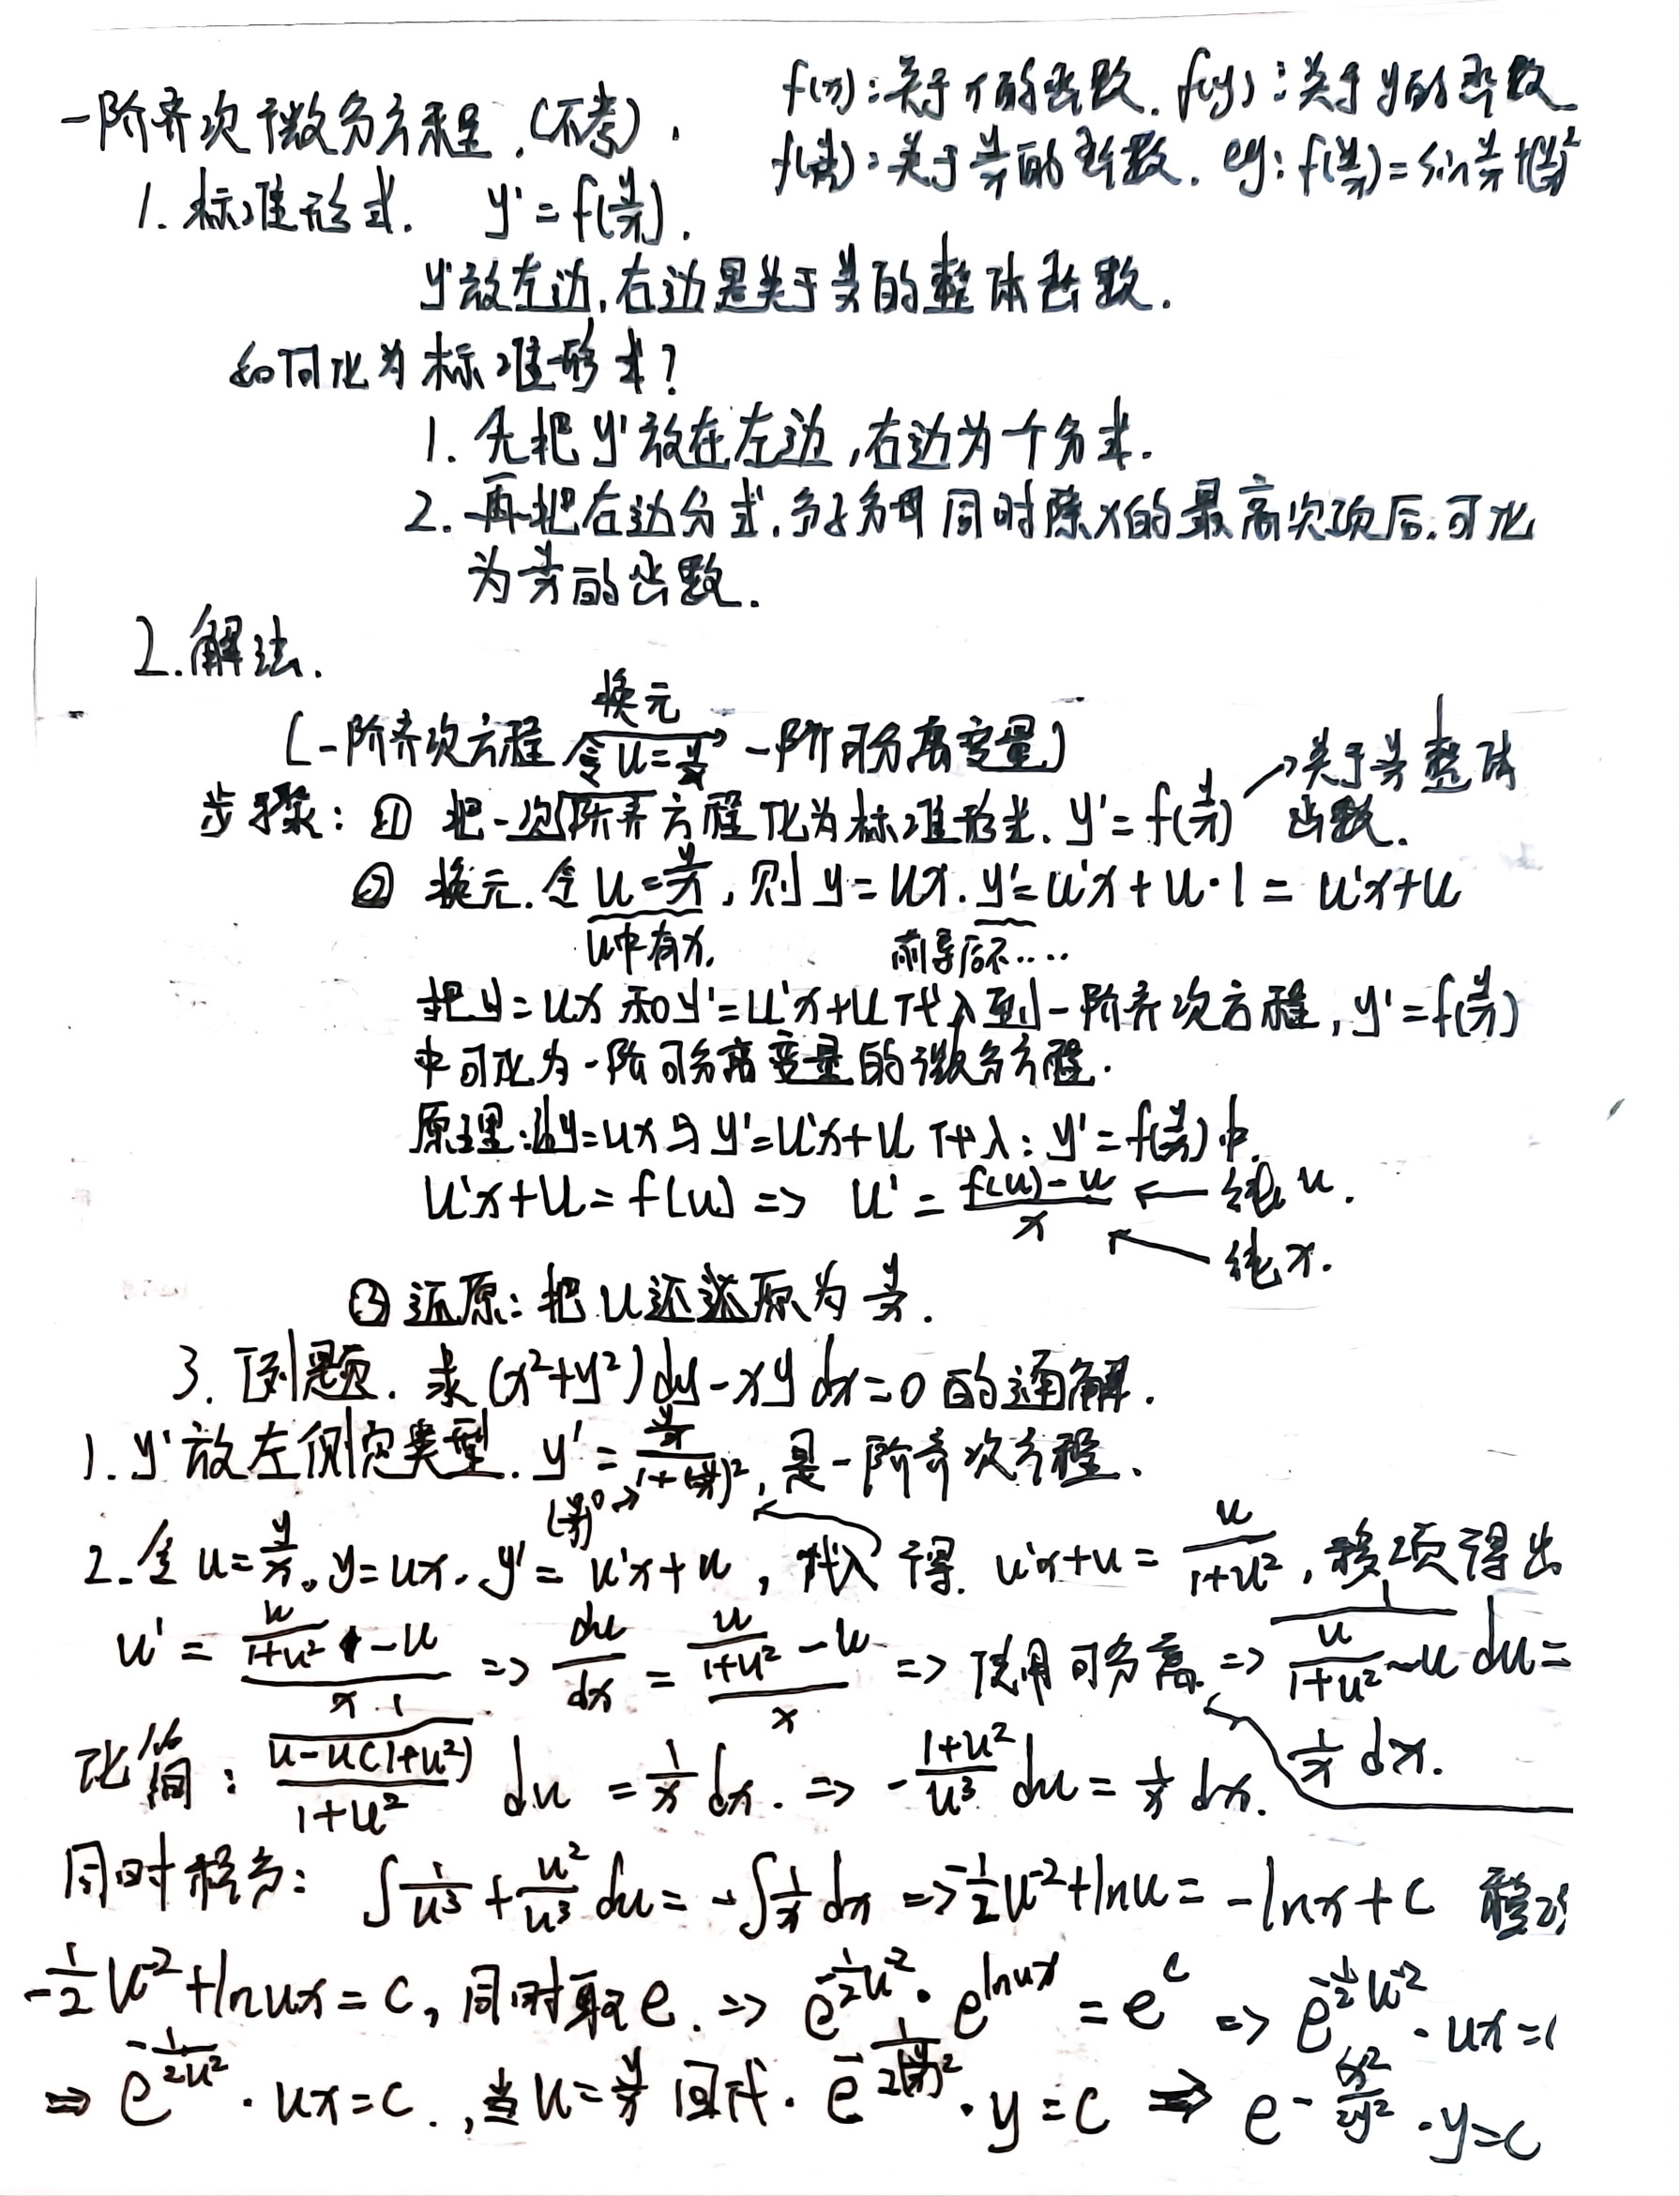 f(x):关于x的函数. f(y):关于y的函数
一阶齐次微分方程.(不考).
f(y/x):关于y/x的函数. eg: f(y/x)=sin y/x+(y/x)²
1. 标准形式. y'=f(y/x).
y'放左边,右边是关于y/x的整体函数.
如何化为标准形式?
1. 先把y'放在左边,右边为个分式.
2. 再把右边分式.分子分母同时除x的最高次项后.可化
为y/x的函数.
2.解法.
换元
(一阶齐次方程 令u=y/x → 一阶可分离变量)
→关于y/x整体
函数.
步骤: ① 把一阶齐次方程化为标准形式. y'=f(y/x)
② 换元.令u=y/x,则y=ux. y'=u'x+u·1=u'x+u
u中有x. 前导后不....
把y=ux和y'=u'x+u代入到一阶齐次方程,y'=f(y/x)
中可化为一阶可分离变量的微分方程.
原理:由y=ux与y'=u'x+u代入: y'=f(y/x)中.
u'x+u=f(u) => u'=(f(u)-u)/x ← 纯u.
← 纯x.
③ 还原:把u还原为y/x.
3. 例题. 求(x²+y²)dy-xydx=0的通解.
1. y'放左侧定类型. y'=(y/x)/(1+(y/x)²),是一阶齐次方程.
(y/x)⁰→
2.令u=y/x。y=ux. y'=u'x+u,代入得. u'x+u=u/(1+u²),移项得出
u'=(u/(1+u²)-u)/(x·1) => du/dx=(u/(1+u²)-u)/x => 使用可分离 => 1/(u/(1+u²)-u) du=
1/x dx.
化简: 1/((u-u(1+u²))/(1+u²)) du=1/x dx. => -(1+u²)/u³ du=1/x dx.
同时积分: ∫1/u³+u²/u³ du=-∫1/x dx => -1/2 u⁻²+lnu=-lnx+c 移项
-1/2 u⁻²+lnux=c,同时取e. => e^(-1/2 u⁻²)·e^(lnux)=e^c => e^(-1/2 u⁻²)·ux=c
=> e^(-1/(2u²))·ux=c.,当u=y/x回代. e^(-1/(2(y/x)²))·y=c => e^(-x²/(2y²))·y=c